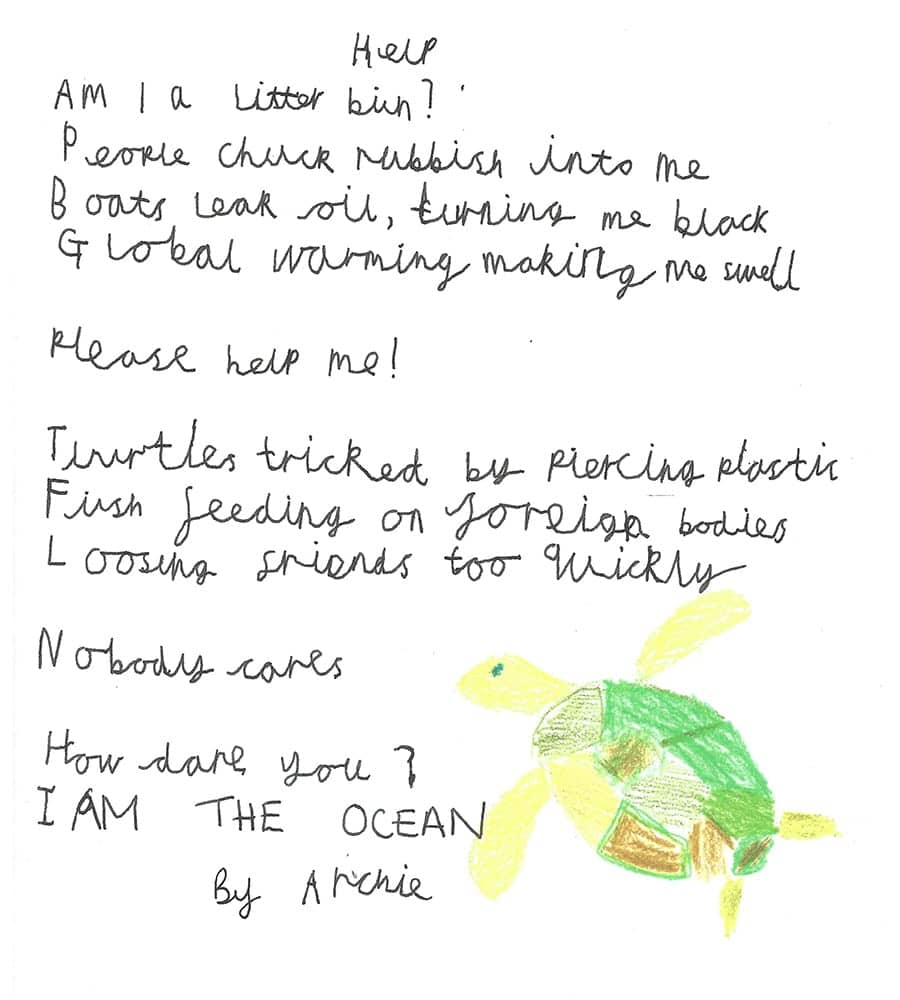 Help
Am I a litter bin?
People chuck rubbish into me
Boats leak oil, turning me black
Global warming making me swell
Please help me!
Turtles tricked by piercing plastic
Fish feeding on foreign bodies
Loosing friends too quickly
Nobody cares
How dare you?
I AM THE OCEAN
By Archie